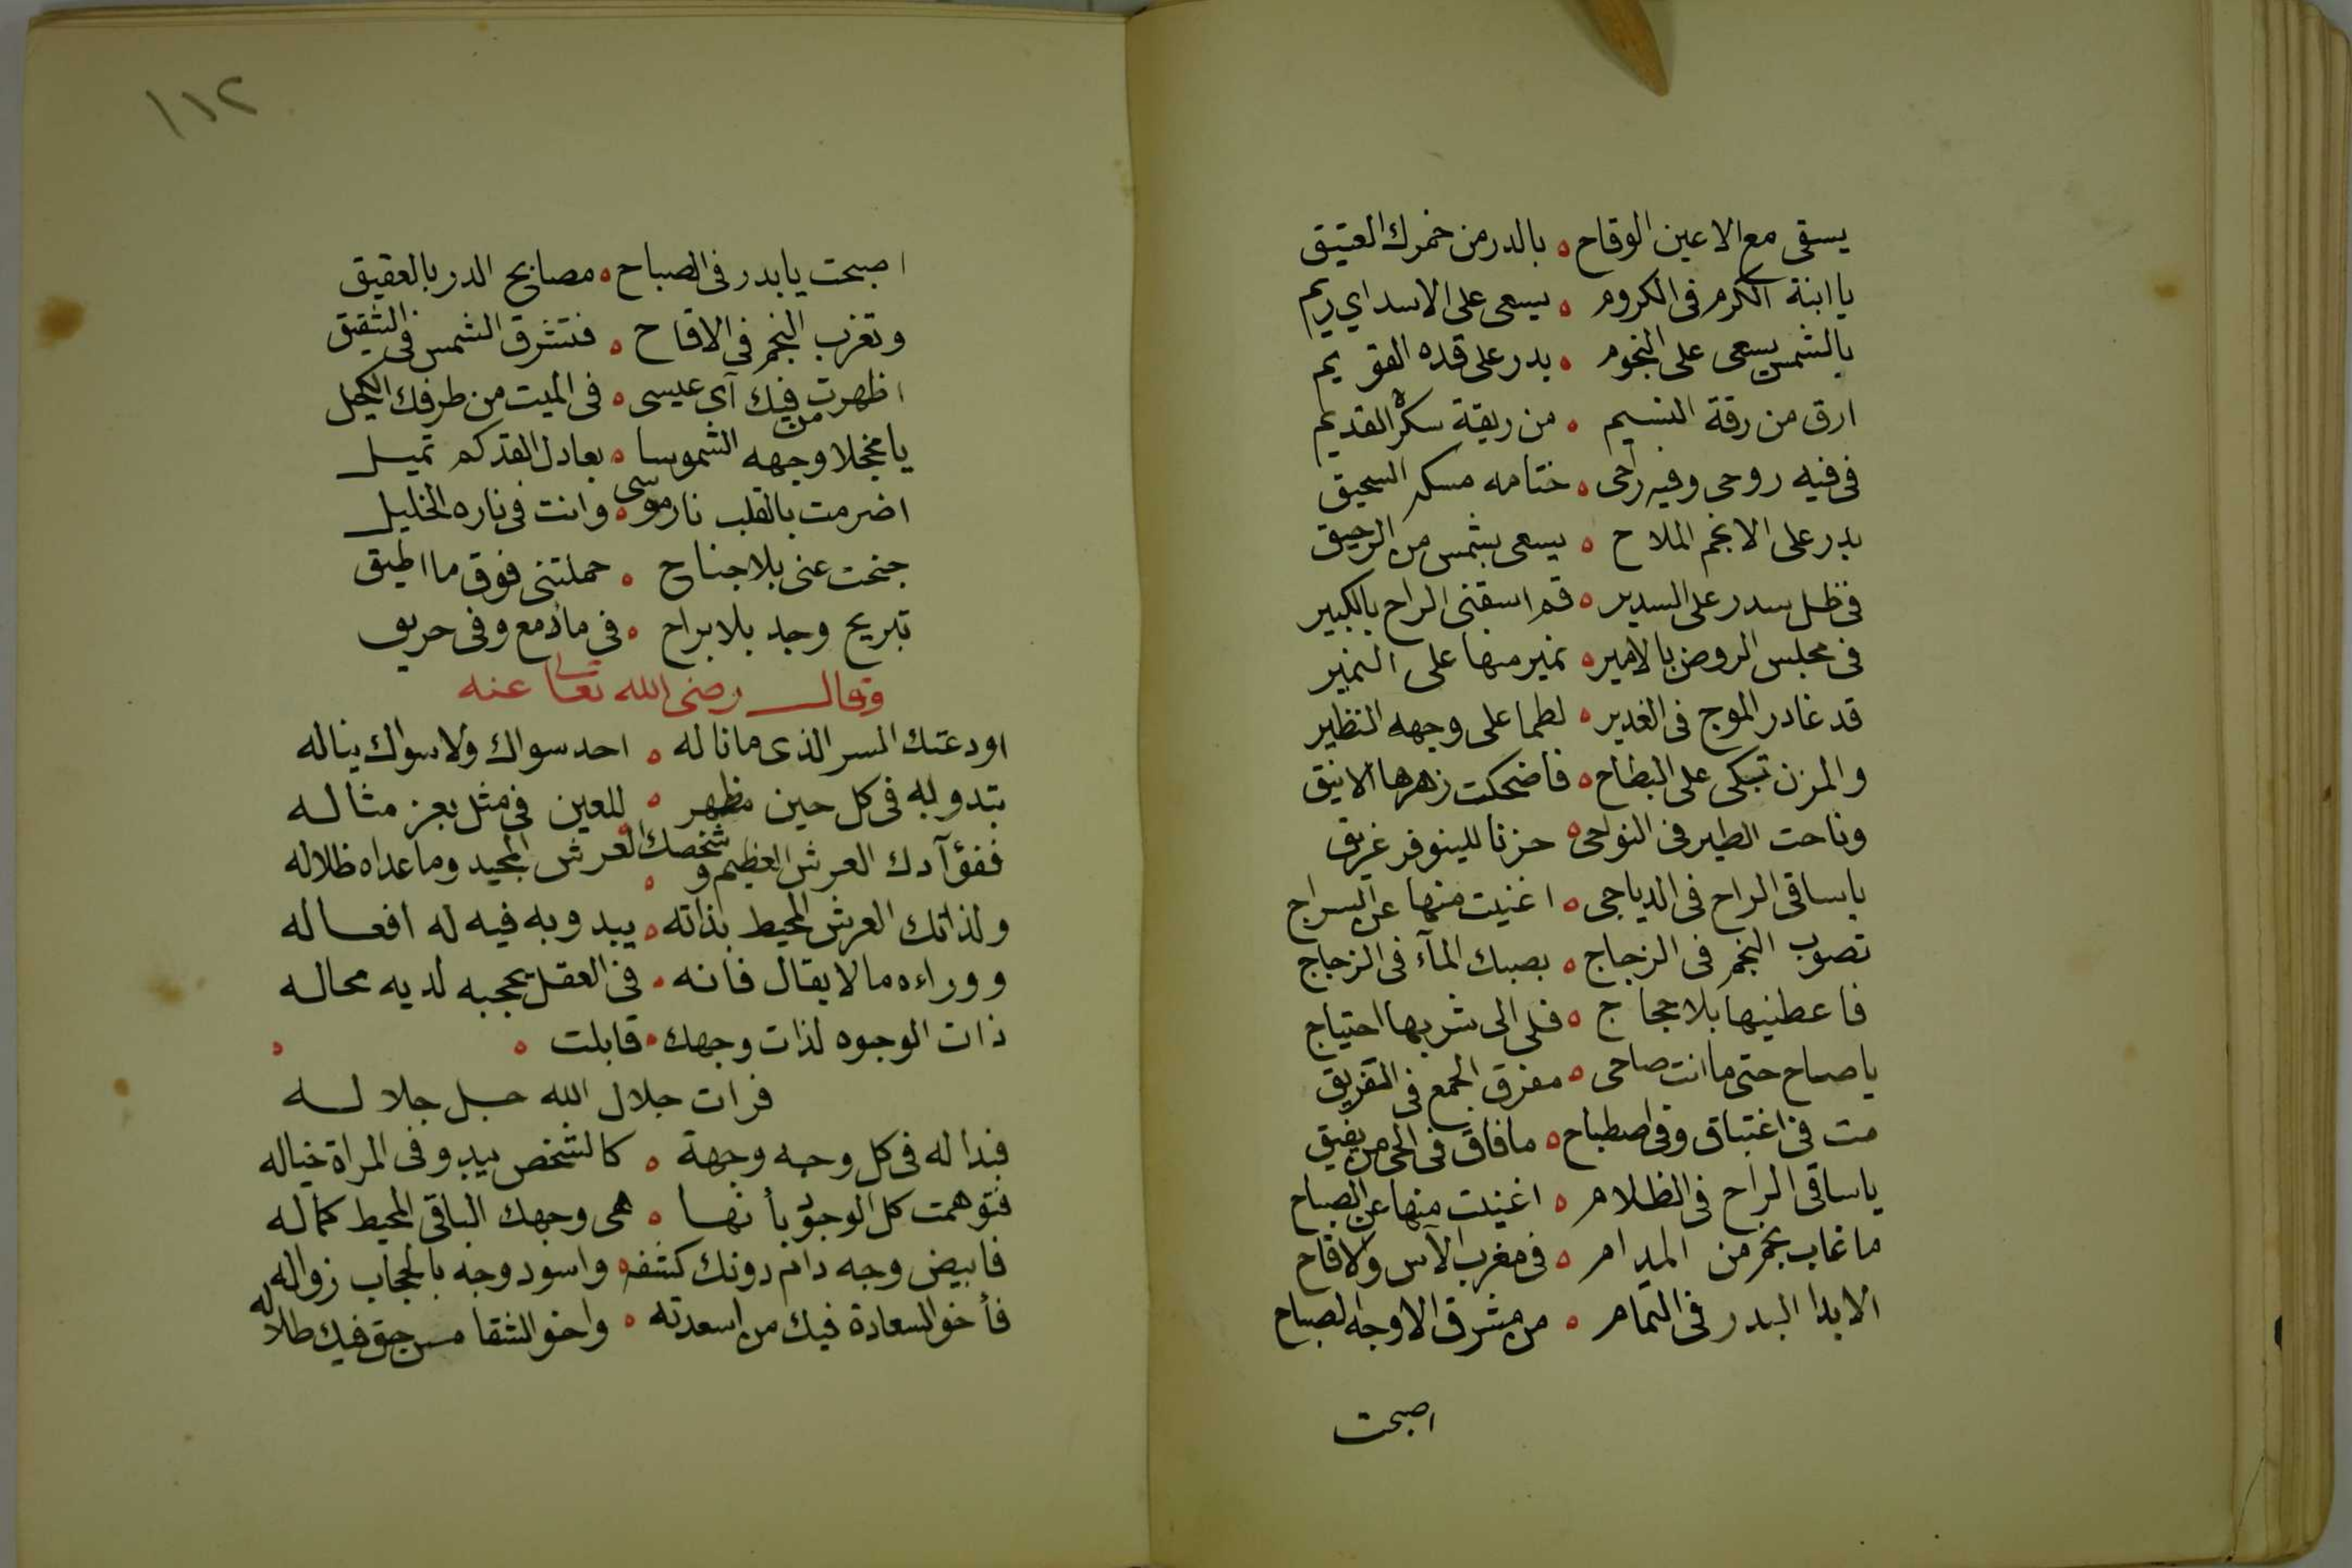 يسقى مع الاعين الوقاح ه بالدر من خمرك العتيق
يا ابنة الكرم فى الكروم ه يسعى على الاسد اي ريم
بالشمس يسعى على النجوم ه بدر على قده القويم
ارق من رقة النسيم ه من ريقة سكر القديم
فى فيه روحى وفيه راحى ه ختامه مسكه السحيق
بدر على الانجم الملاح ه يسعى بشمس من الرحيق
فى ظل سدر على السدير ه قم اسقنى الراح بالكبير
فى مجلس الروض بالامير ه نمير منها على النمير
قد غادر الموج فى الغدير ه لطما على وجهه النظير
والمزن تبكى على البطاح ه فاضحكت زهرها الانيق
وناحت الطير فى النواحى ه حزنا للينوفر غريق
ياساقى الراح فى الدياجى ه اغنيت منها عن السراج
تصوب النجم فى الزجاج ه بصبك المآء فى الزجاج
فاعطنيها بلا حجاج ه فلى الى شربها احتياج
ياصاح حتى ما انت صاحى ه مفرق الجمع فى التفريق
مت فى اغتباق وفى اصطباح ه مافاق فى الحى من يفيق
ياساقى الراح فى الظلام ه اغنيت منها عن الصباح
ماغاب نجم من المدام ه فى مغرب الآس والاقاح
الا بدا البدر فى التمام ه من مشرق الاوجه الصباح
اصبحت
١١٢
اصبحت يابدر فى الصباح ه مصابح الدر بالعقيق
وتغرب النجم فى الاقاح ه فتشرق الشمس فى الشقيق
اظهرت فيك آى عيسى ه فى الميت من طرفك الكحيل
يا مخجلا من وجهه الشموسا ه بعادل القد كم تميل
اضرمت بالقلب نار موسى ه وانت فى ناره الخليل
جنحت عنى بلا جناح ه حملتنى فوق ما اطيق
تبريح وجد بلا براح ه فى مادمع وفى حريق
وقال رضى الله تعالى عنه
اودعتك السر الذى ما ناله ه احد سواك ولا سواك يناله
بتدوله فى كل حين مظهر ه للعين فى مثل يعز مثاله
ففؤآدك العرش العظيم وشخصك ه العرش المجيد وما عداه ظلاله
ولذاتك العرش المحيط بذاته ه يبدو به فيه له افعاله
ووراءه ما لا يقال فانه ه فى العقل يحجبه لديه محاله
ذات الوجوه لذات وجهك ه قابلت ه ه
فرات جلال الله جل جلاله
فبدا له فى كل وجه وجهة ه كالشخص يبدو فى المراة خياله
فتوهمت كل الوجوه بأنها ه هى وجهك الباقى المحيط كماله
فابيض وجه دام دونك كشفه ه واسود وجه بالحجاب زواله
فأخو السعادة فيك من اسعدته ه واخو الشقا من حق فيك طلاله